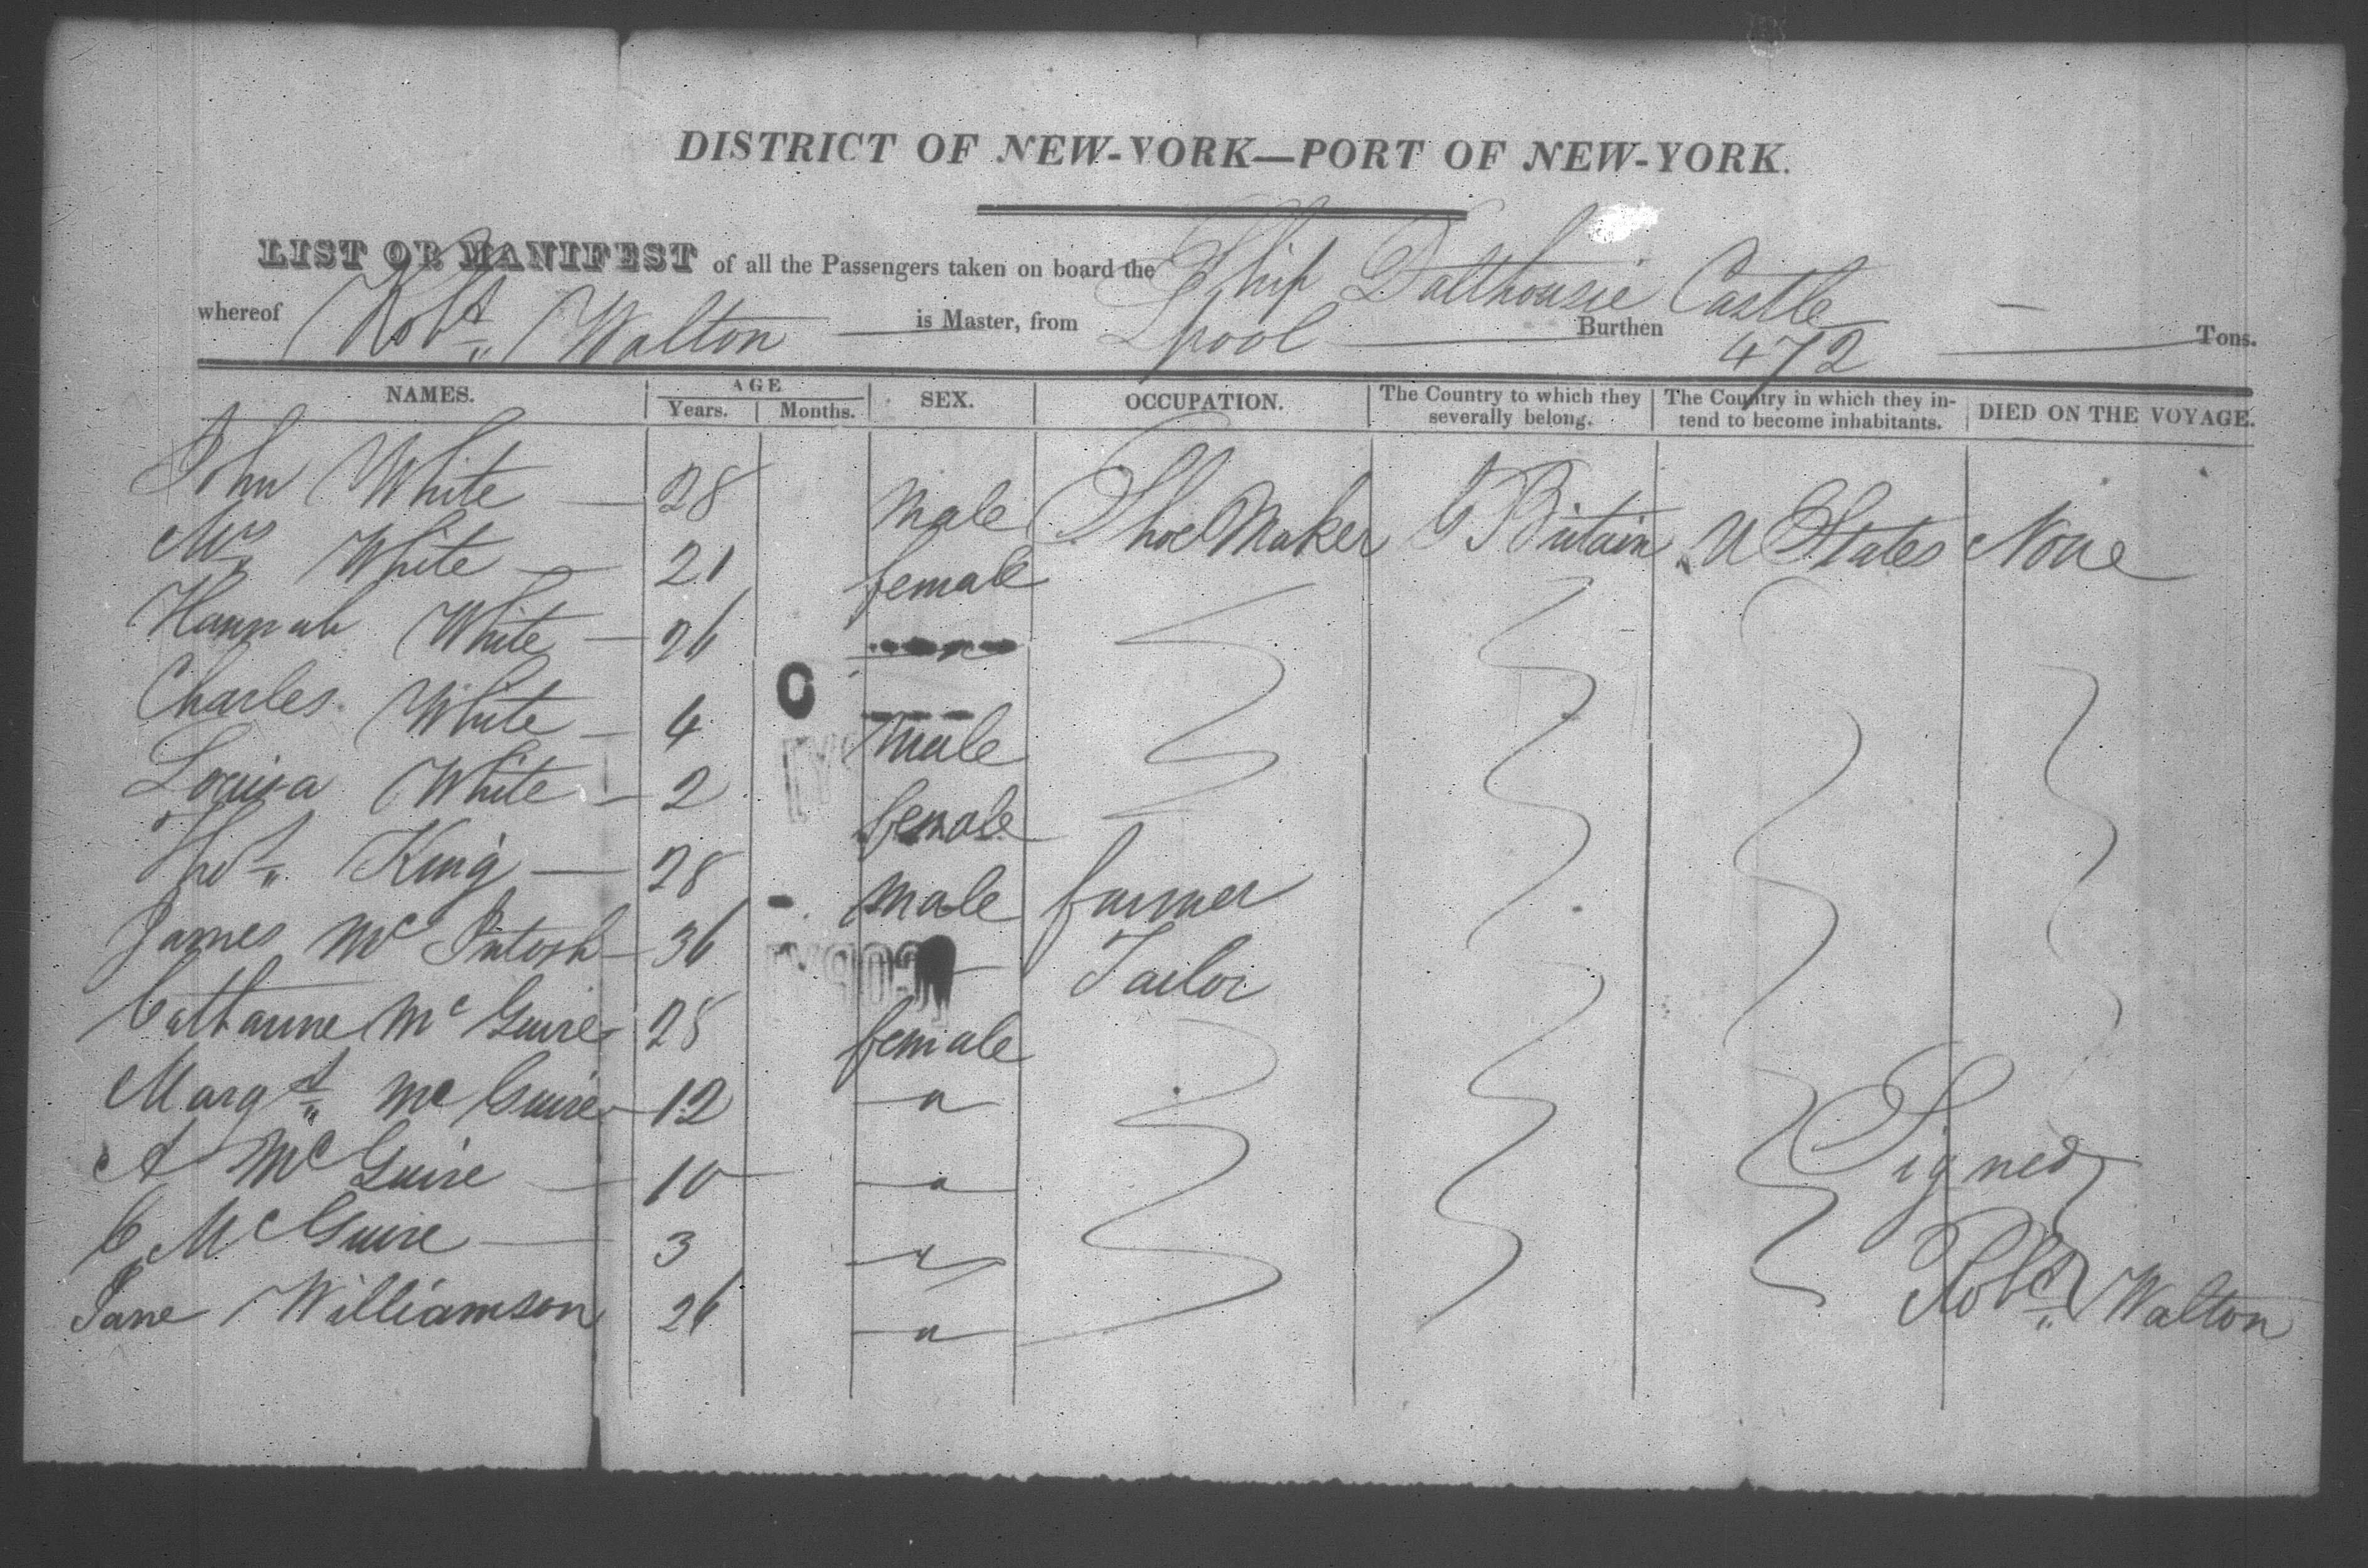 DISTRICT OF NEW-YORK—PORT OF NEW-YORK.
LIST OR MANIFEST of all the Passengers taken on board the Ship Dalthousie Castle
whereof Robt Walton is Master, from Lpool Burthen 472 Tons.
NAMES. AGE Years. Months. SEX. OCCUPATION. The Country to which they severally belong. The Country in which they intend to become inhabitants. DIED ON THE VOYAGE.
John White 28 male Shoe Maker G Britain U States None
Mrs White 21 female
Hannah White 26 "
Charles White 4 male
Louisa White 2 female
King 28 male farmer
James McIntosh 36 Tailor
Catharine McGuire 28 female
Margt McGuire 12 "
A McGuire 10 "
C McGuire 3 "
Jane Williamson 26 "
COPY
Signed
Robt Walton